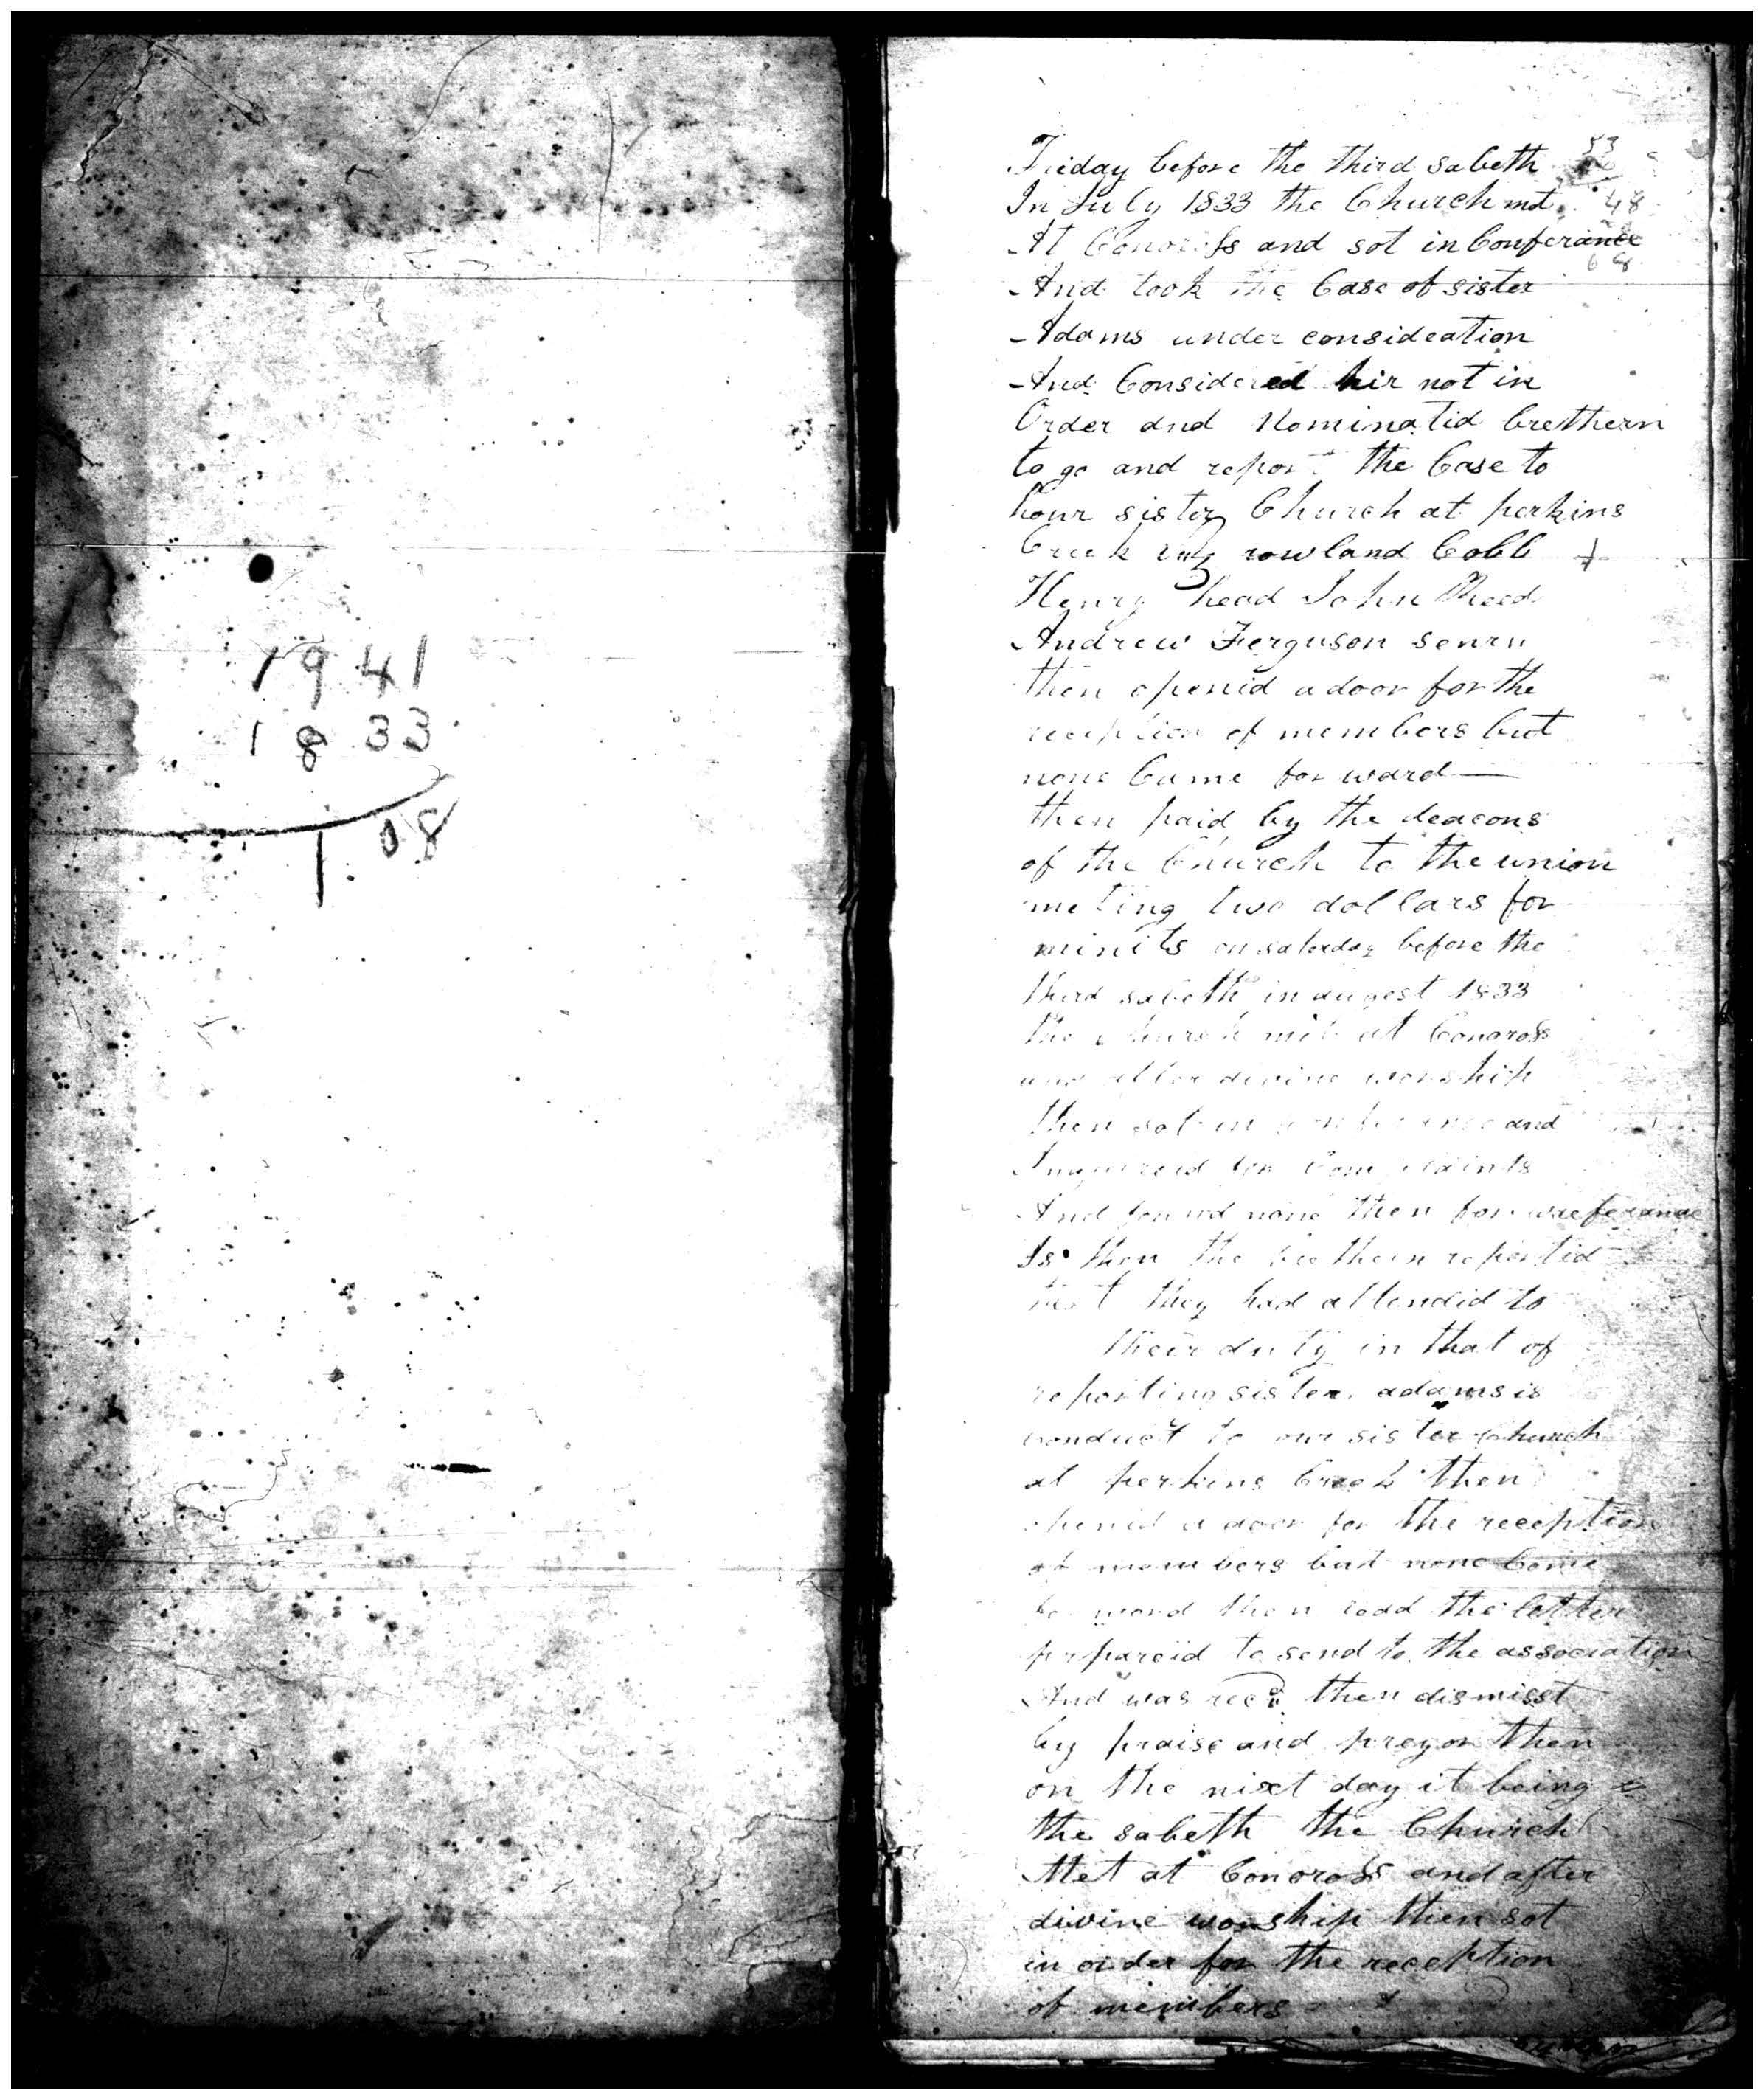 1941
1833
108
Friday before the third sabeth
In July 1833 the Church met
48
At Conoross and sot in Conferance
68
And took the Case of sister
Adams under consideation
And Considered hir not in
Order and Nominatid brethern
to go and report the Case to
hour sister Church at perkins
Creek rowland Cobb
Henry head John Reed
Andrew Ferguson senr
then openid a door for the
reception of members but
none Came for ward
then paid by the deacons
of the Church to the union
meting two dollars for
minits on saterday before the
third sabeth in augest 1833
the Church met at Conoross
and after divine worship
then sot in and
Inquireid for Complaints
And found none then for
then the brethern reportid
that they had attendid to
their duty in that of
reporting sister adams is
conduct to our sister Church
at perkins Creek then
openid a door for the reception
of members but none Come
for ward then read the letter
prepareid to send to the association
And was recd then dismisst
by praise and preyor then
on the nixt day it being
the sabeth the Church
Met at Conoross and after
divine worship then sot
in order for the reception
of members